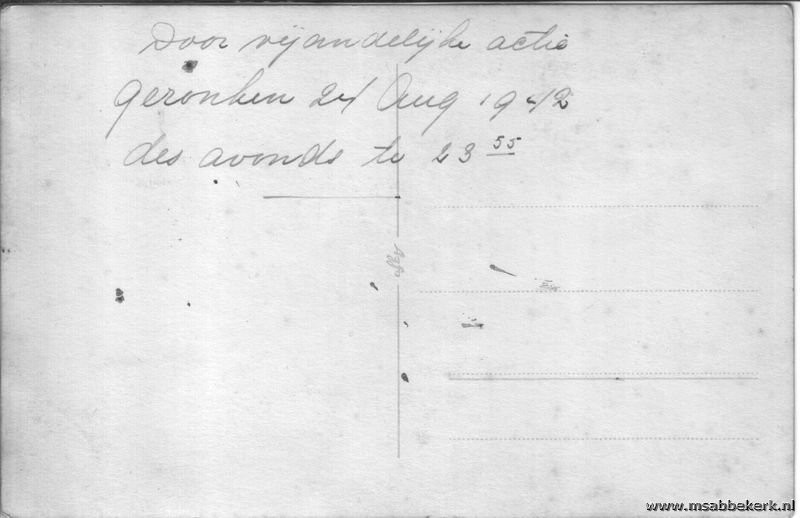 Door vijandelijke actie
gezonken 24 Aug 1942
des avonds te 23 55
www.msabbekerk.nl